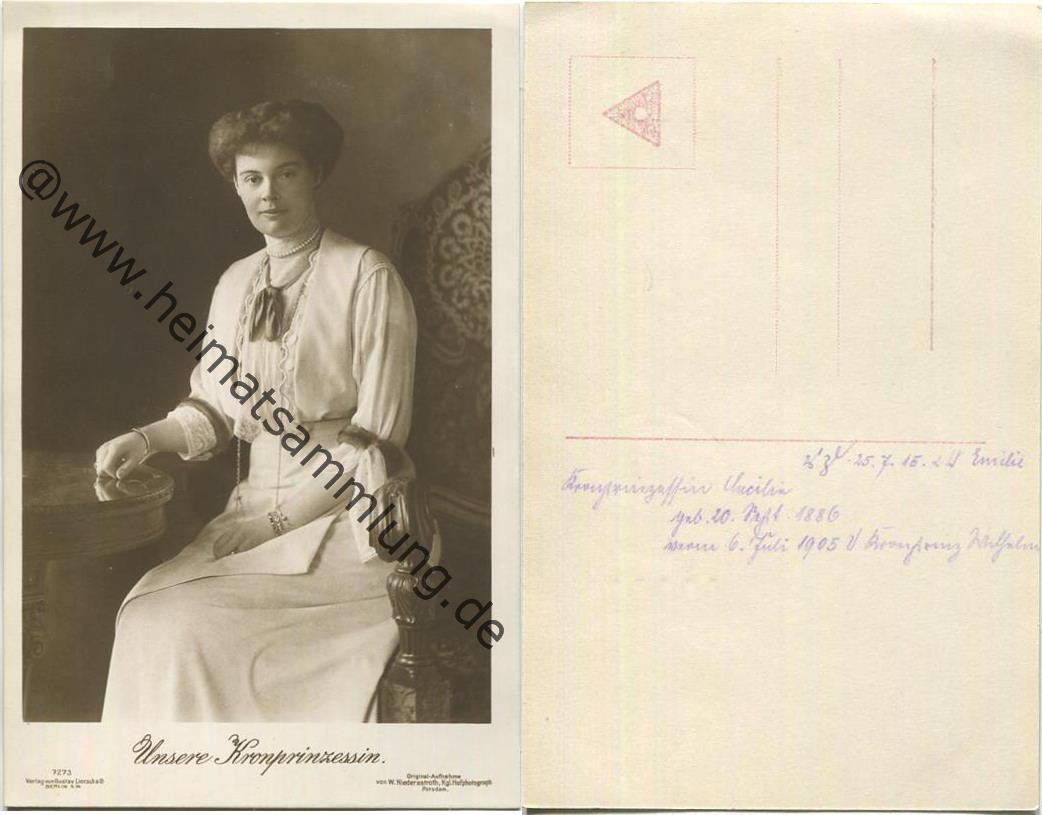 @www.heimatsammlung.de
Unsere Kronprinzessin.
7273
Verlag von Gustav Liersch & Co
BERLIN S.W.
Original-Aufnahme
von W. Niederastroth, Kgl. Hofphotograph
Potsdam.
25.7.15. Emilie
Kronprinzessin Cecilie
geb. 20. Sept. 1886
verm 6. Juli 1905 Kronprinz Wilhelm